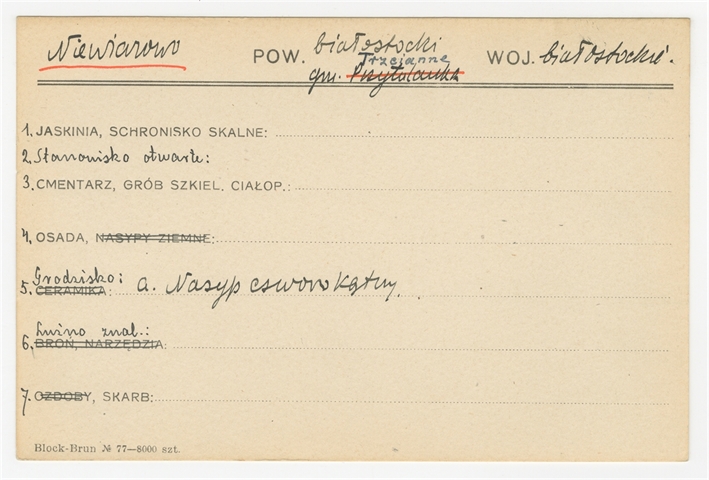 Niewiarowo POW. białostocki WOJ. białostockie.
Trzcianne
gm. Przytulanka
1. JASKINIA, SCHRONISKO SKALNE:
2. Stanowisko otwarte:
3. CMENTARZ, GRÓB SZKIEL. CIAŁOP.:
4. OSADA, NASYPY ZIEMNE:
Grodzisko: a. Nasyp czworokątny.
5. CERAMIKA:
Luźno znal.:
6. BROŃ, NARZĘDZIA:
7. OZDOBY, SKARB:
Block-Brun № 77—8000 szt.